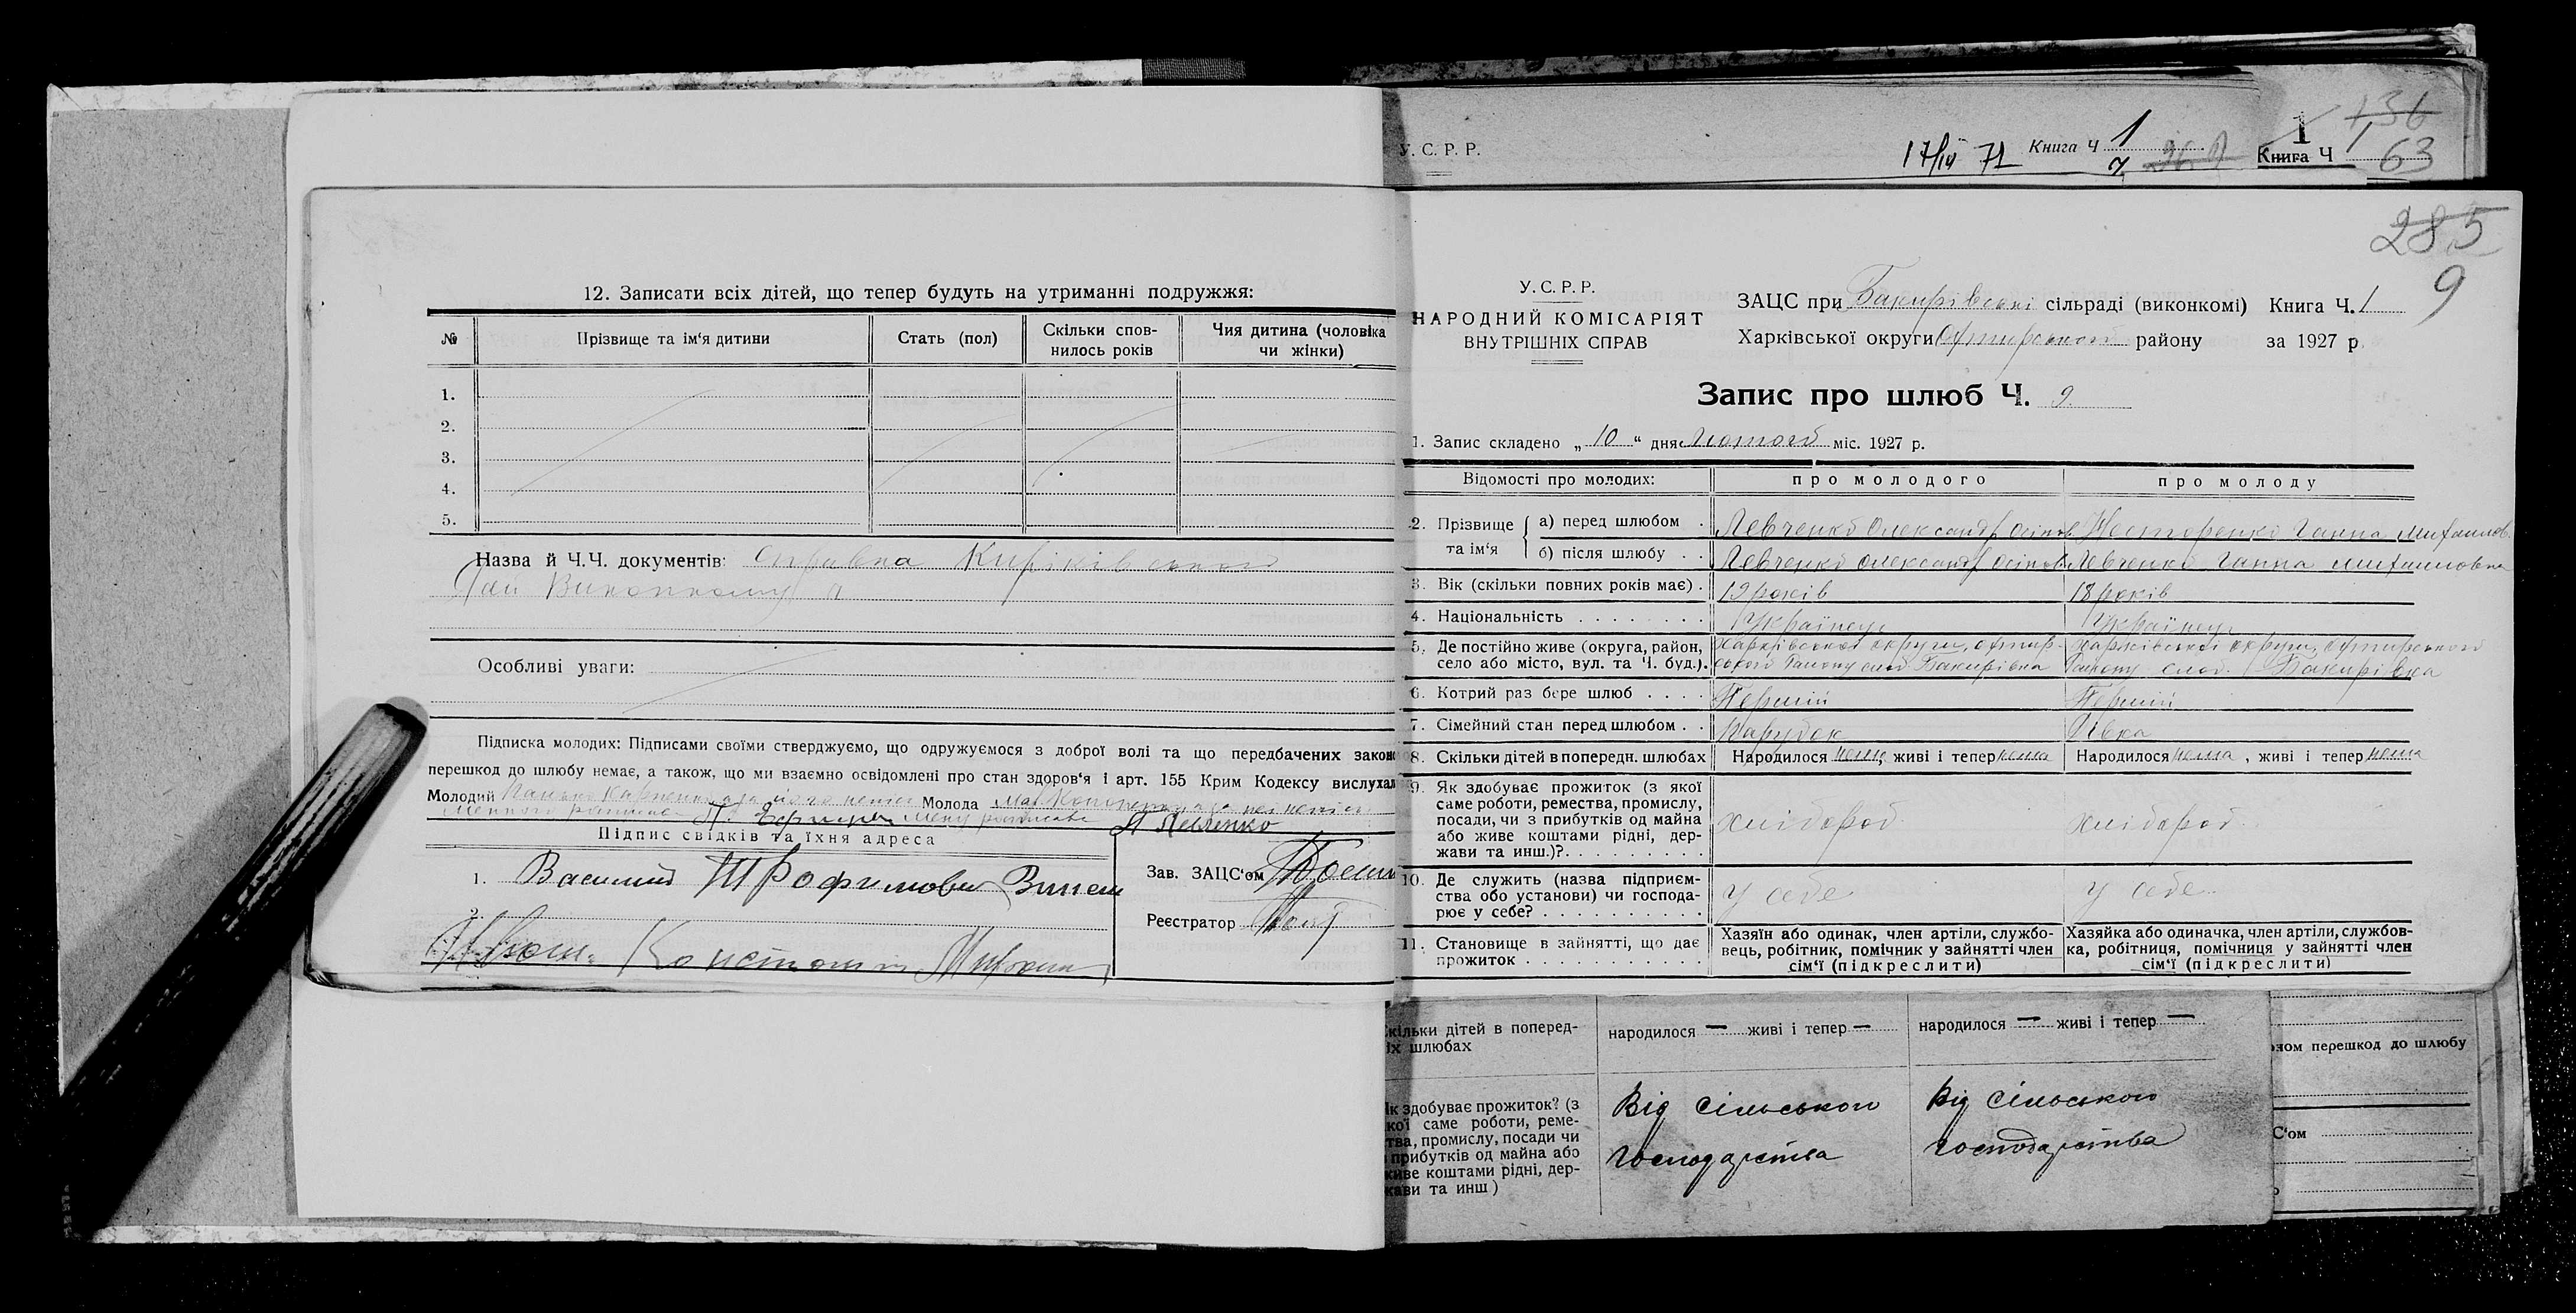 12. Записати всіх дітей, що тепер будуть на утриманні подружжя:
№ Прізвище та ім‘я дитини Стать (пол) Скільки спов- Чия дитина (чоловіка
нилось років чи жінки)
1.
2.
3.
4.
5.
Назва й Ч.Ч. документів: справка Кириківського
Рай Виконкому
Особливі уваги:
Підписка молодих: Підписами своїми стверджуємо, що одружуємося з доброї волі та що передбачених закон
перешкод до шлюбу немає, а також, що ми взаємно освідомлені про стан здоров‘я і арт. 155 Крим Кодексу вислухал
Молодий Молода
Підпис свідків та їхня адреса
1. Василий Трофимович
2.
Зав. ЗАЦС‘ом
Реєстратор
У. С. Р. Р.
17/IV 71 Книга Ч 1
1
Книга Ч
136
63
285
9
У. С. Р. Р.
НАРОДНИЙ КОМІСАРІЯТ
ВНУТРІШНІХ СПРАВ
ЗАЦС при Бакирівські сільраді (виконкомі) Книга Ч. 1
Харківської округи Охтирського району за 1927 р.
Запис про шлюб Ч. 9
1. Запис складено „ 10 “ дня Лютого міс. 1927 р.
Відомості про молодих: про молодого про молоду
2. Прізвище та ім‘я а) перед шлюбом . Левченко Олександр Осіпов Нестеренко Ганна Михаилов.
б) після шлюбу . . Левченко Олександр Осіпов Левченко Ганна Михаиловна
3. Вік (скільки повних років має) . 19 років 18 років
4. Національність . . . . . . . . Українец Українец
5. Де постійно живе (округа, район, Харківської округи, Охтир- Харківської округи, Охтирського
село або місто, вул. та Ч. буд.). ського Району слоб Бакирівка Району слоб. Бакирівка
6. Котрий раз бере шлюб . . . . Перший Перший
7. Сімейний стан перед шлюбом . . Парубок Дівка
8. Скільки дітей в попередн. шлюбах Народилося нема, живі і тепер нема Народилося нема, живі і тепер нема
9. Як здобуває прожиток (з якої
саме роботи, ремества, промислу,
посади, чи з прибутків од майна
або живе коштами рідні, дер-
жави та инш.)?. . . . . . . . .
хлібороб хлібороб
10. Де служить (назва підприєм-
ства обо установи) чи господа-
рює у себе? . . . . . . . . . .
у себе у себе
11. Становище в зайнятті, що дає
прожиток . . . . . . . . . . .
Хазяїн або одинак, член артіли, службо-
вець, робітник, помічник у зайнятті член
сім‘ї (підкреслити)
Хазяйка або одиначка, член артіли, службов-
ка, робітниця, помічниця у зайнятті член
сім‘ї (підкреслити)
кільки дітей в поперед-
іх шлюбах
народилося — живі і тепер — народилося — живі і тепер —
Як здобуває прожиток? (з
кої саме роботи, реме-
тва, промислу, посади чи
прибутків од майна або
живе коштами рідні, дер-
жави та инш)
Від сільського
господарства
Від сільського
господарства
ном перешкод до шлюбу
С‘ом